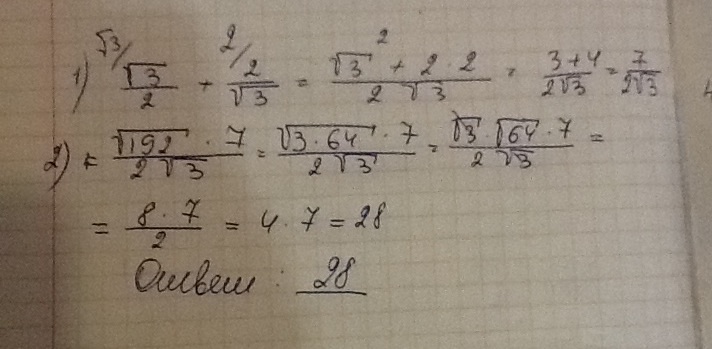 1) √3/ √3/2 + 2/ 2/√3 = (√3² + 2·2)/(2√3) = (3+4)/(2√3) = 7/(2√3)
2) = (√192 · 7)/(2√3) = (√3·64 · 7)/(2√3) = (√3 · √64 · 7)/(2√3) =
= (8 · 7)/2 = 4 · 7 = 28
Ответ : 28